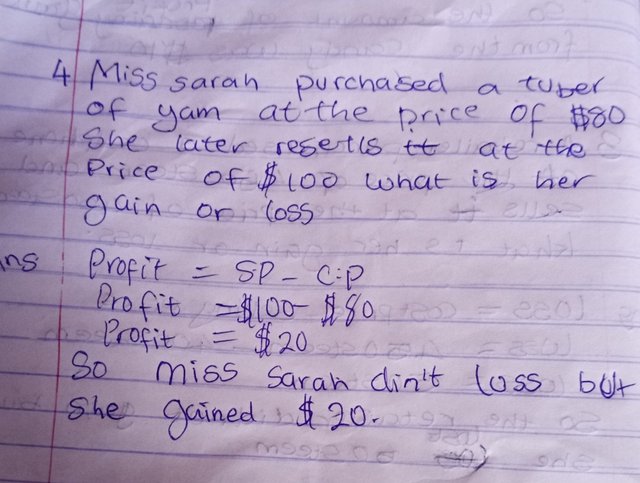 4 Miss sarah purchased a tuber
of yam at the price of $80
She later resells it at the
Price of $100 what is her
gain or loss
ans Profit = SP - C:P
Profit = $100 - $80
Profit = $20
So miss Sarah din't loss but
she gained $20.